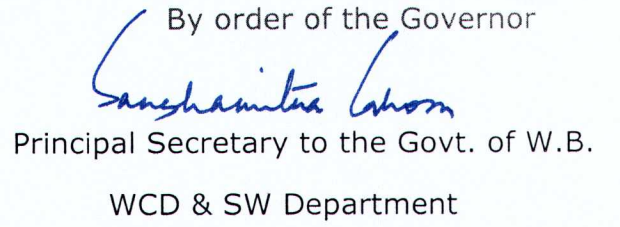 By order of the Governor
Sanghamitra Ghosh
Principal Secretary to the Govt. of W.B.
WCD & SW Department